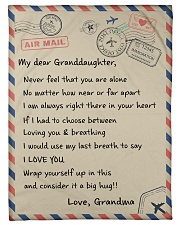 AIR MAIL
My dear Granddaughter,
Never feel that you are alone
No matter how near or far apart
I am always right there in your heart
If I had to choose between
Loving you & breathing
I would use my last breath to say
I LOVE YOU
Wrap yourself up in this
and consider it a big hug!!
Love, Grandma